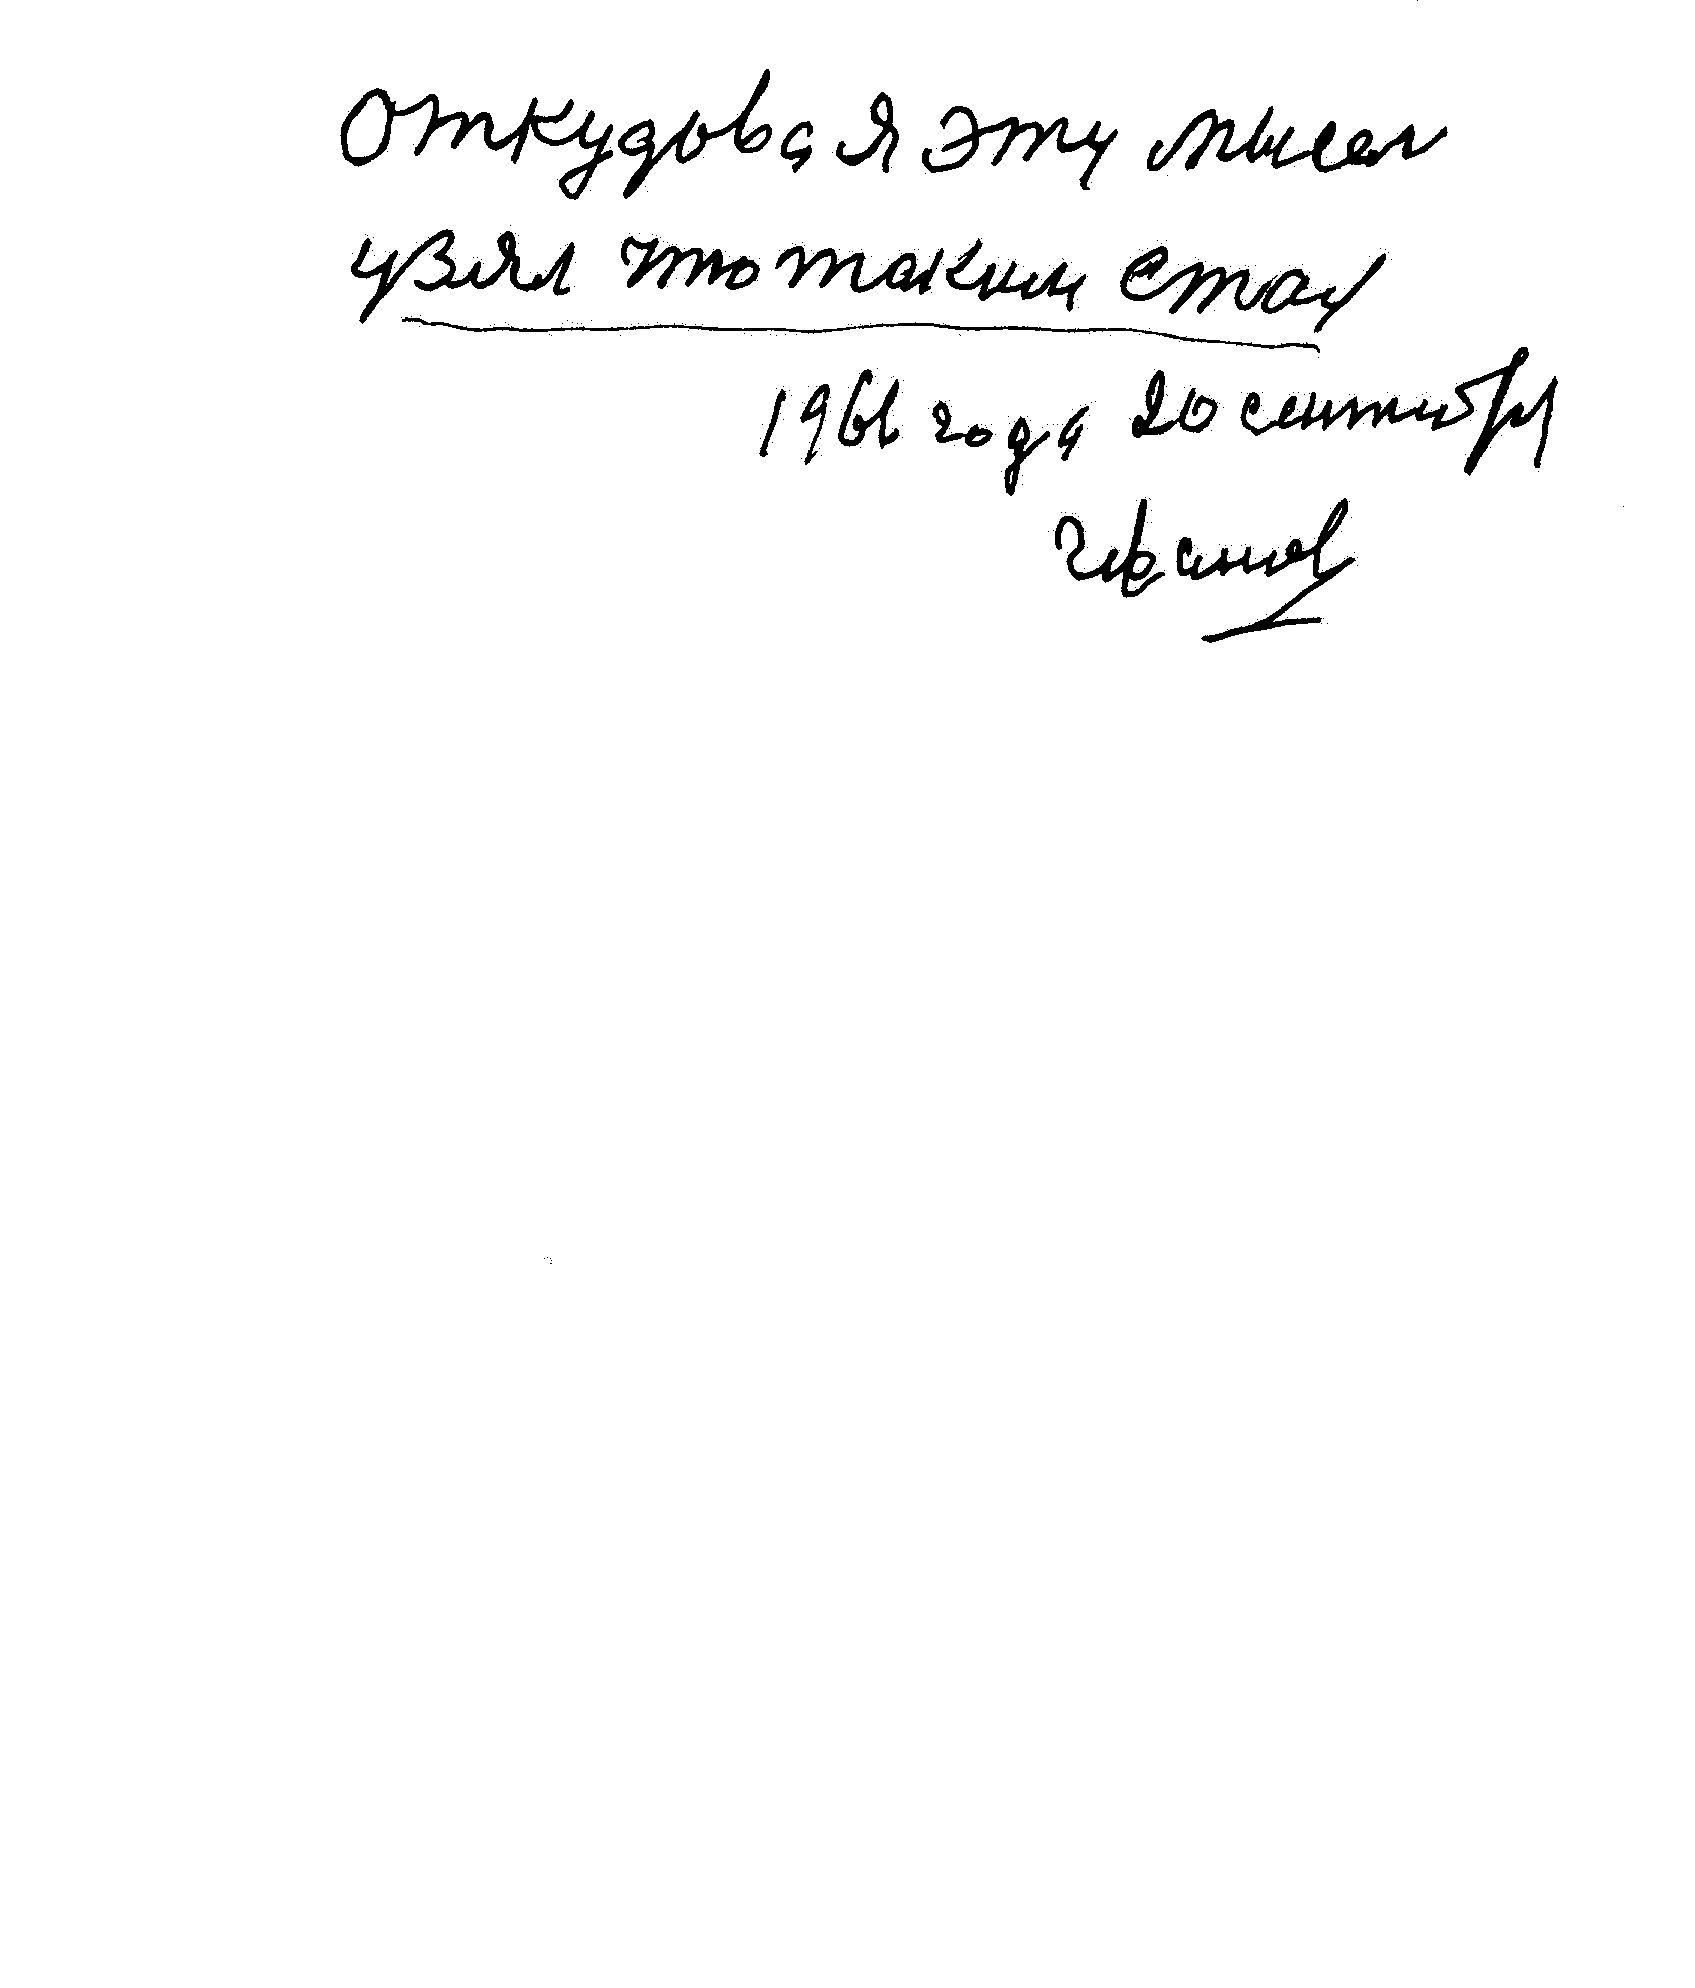 откудова я эту мысел
узял что таким стал
1966 года 20 сентибри